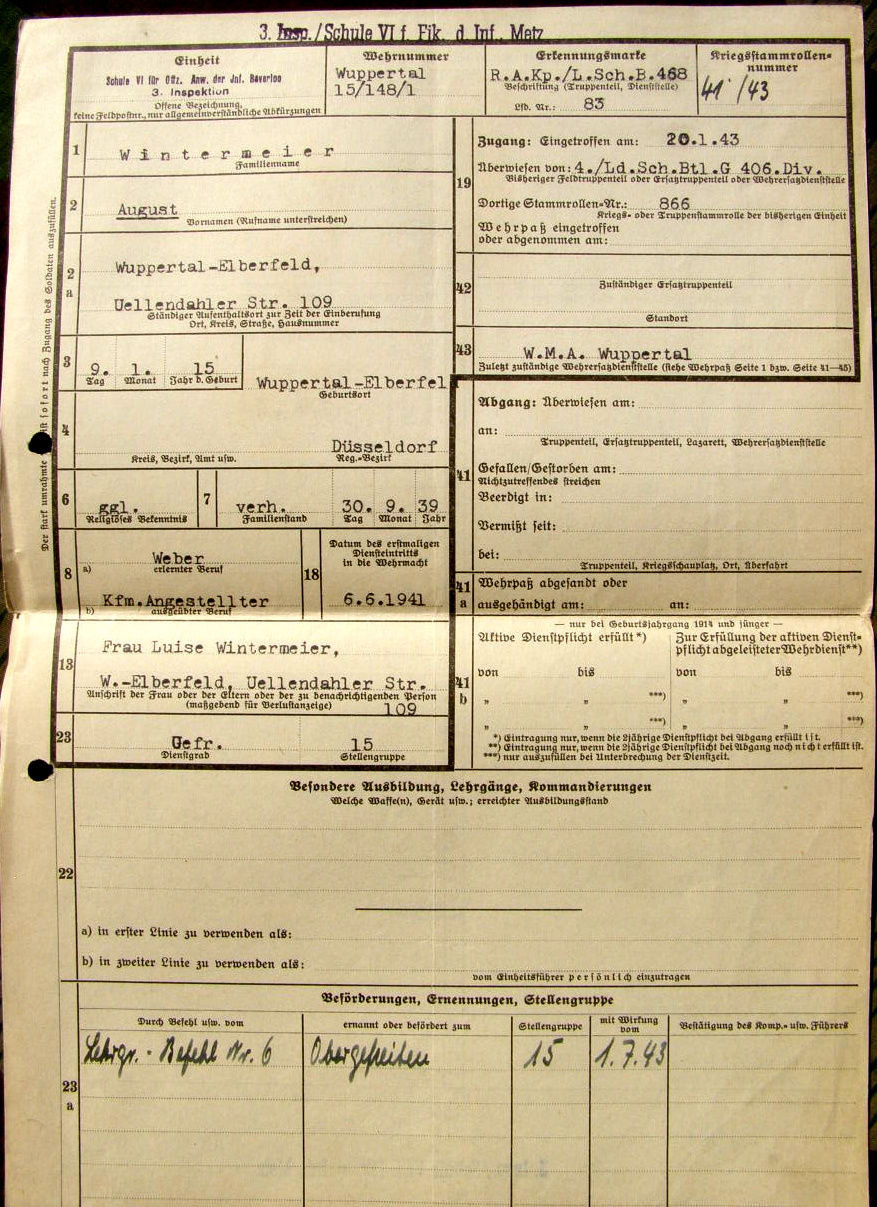 3. Insp./Schule VI f. Fik. d. Inf. Metz
Einheit
Schule VI für Offz. Anw. der Inf. Beverloo
3. Inspektion
Offene Bezeichnung,
keine Feldpostnr., nur allgemeinverständliche Abkürzungen
Wehrnummer
Wuppertal
15/148/1
Erkennungsmarke
R.A.Kp./L.Sch.B.468
Beschriftung (Truppenteil, Dienststelle)
Lfd. Nr.: 83
Kriegsstammrollen-
nummer
41/43
Der stark umrahmte Teil ist sofort nach Zugang des Soldaten auszufüllen.
1
Wintermeier
Familienname
2
August
Vornamen (Rufname unterstreichen)
2
a
Wuppertal-Elberfeld,
Uellendahler Str. 109
Ständiger Aufenthaltsort zur Zeit der Einberufung
Ort, Kreis, Straße, Hausnummer
3
9. 1. 15
Tag Monat Jahr d. Geburt
Wuppertal-Elberfel
Geburtsort
4
Düsseldorf
Kreis, Bezirk, Amt usw. Reg.-Bezirk
6
ggl.
Religiöses Bekenntnis
7
verh. 30. 9. 39
Familienstand Tag Monat Jahr
8
Weber
a) erlernter Beruf
Kfm.Angestellter
b) ausgeübter Beruf
18
Datum des erstmaligen
Diensteintritts
in die Wehrmacht
6.6.1941
13
Frau Luise Wintermeier,
W.-Elberfeld, Uellendahler Str.
Anschrift der Frau oder der Eltern oder der zu benachrichtigenden Person
(maßgebend für Verlustanzeige) 109
23
Gefr. 15
Dienstgrad Stellengruppe
19
Zugang: Eingetroffen am: 20.1.43
Überwiesen von: 4./Ld.Sch.Btl.G 406.Div.
Bisheriger Feldtruppenteil oder Ersatztruppenteil oder Wehrersatzdienststelle
Dortige Stammrollen-Nr.: 866
Kriegs- oder Truppenstammrolle der bisherigen Einheit
Wehrpaß eingetroffen
oder abgenommen am:
42
Zuständiger Ersatztruppenteil
Standort
43
W.M.A. Wuppertal
Zuletzt zuständige Wehrersatzdienststelle (siehe Wehrpaß Seite 1 bzw. Seite 41—45)
41
Abgang: Überwiesen am:
an:
Truppenteil, Ersatztruppenteil, Lazarett, Wehrersatzdienststelle
Gefallen/Gestorben am:
Nichtzutreffendes streichen
Beerdigt in:
Vermißt seit:
bei:
Truppenteil, Kriegsschauplatz, Ort, Überfahrt
41
a
Wehrpaß abgesandt oder
ausgehändigt am: an:
41
b
— nur bei Geburtsjahrgang 1914 und jünger —
Aktive Dienstpflicht erfüllt*)
Zur Erfüllung der aktiven Dienst-
pflicht abgeleisteter Wehrdienst**)
von bis von bis
„ „ ***) „ „ ***)
„ „ ***) „ „ ***)
*) Eintragung nur, wenn die 2jährige Dienstpflicht bei Abgang erfüllt ist.
**) Eintragung nur, wenn die 2jährige Dienstpflicht bei Abgang noch nicht erfüllt ist.
***) nur auszufüllen bei Unterbrechung der Dienstzeit.
22
Besondere Ausbildung, Lehrgänge, Kommandierungen
Welche Waffe(n), Gerät usw.; erreichter Ausbildungsstand
a) in erster Linie zu verwenden als:
b) in zweiter Linie zu verwenden als:
vom Einheitsführer persönlich einzutragen
23
a
Beförderungen, Ernennungen, Stellengruppe
Durch Befehl usw. vom
ernannt oder befördert zum
Stellengruppe
mit Wirkung
vom
Bestätigung des Komp.- usw. Führers
Lehrgr.- Befehl Nr. 6 Obergefreiten 15 1.7.43